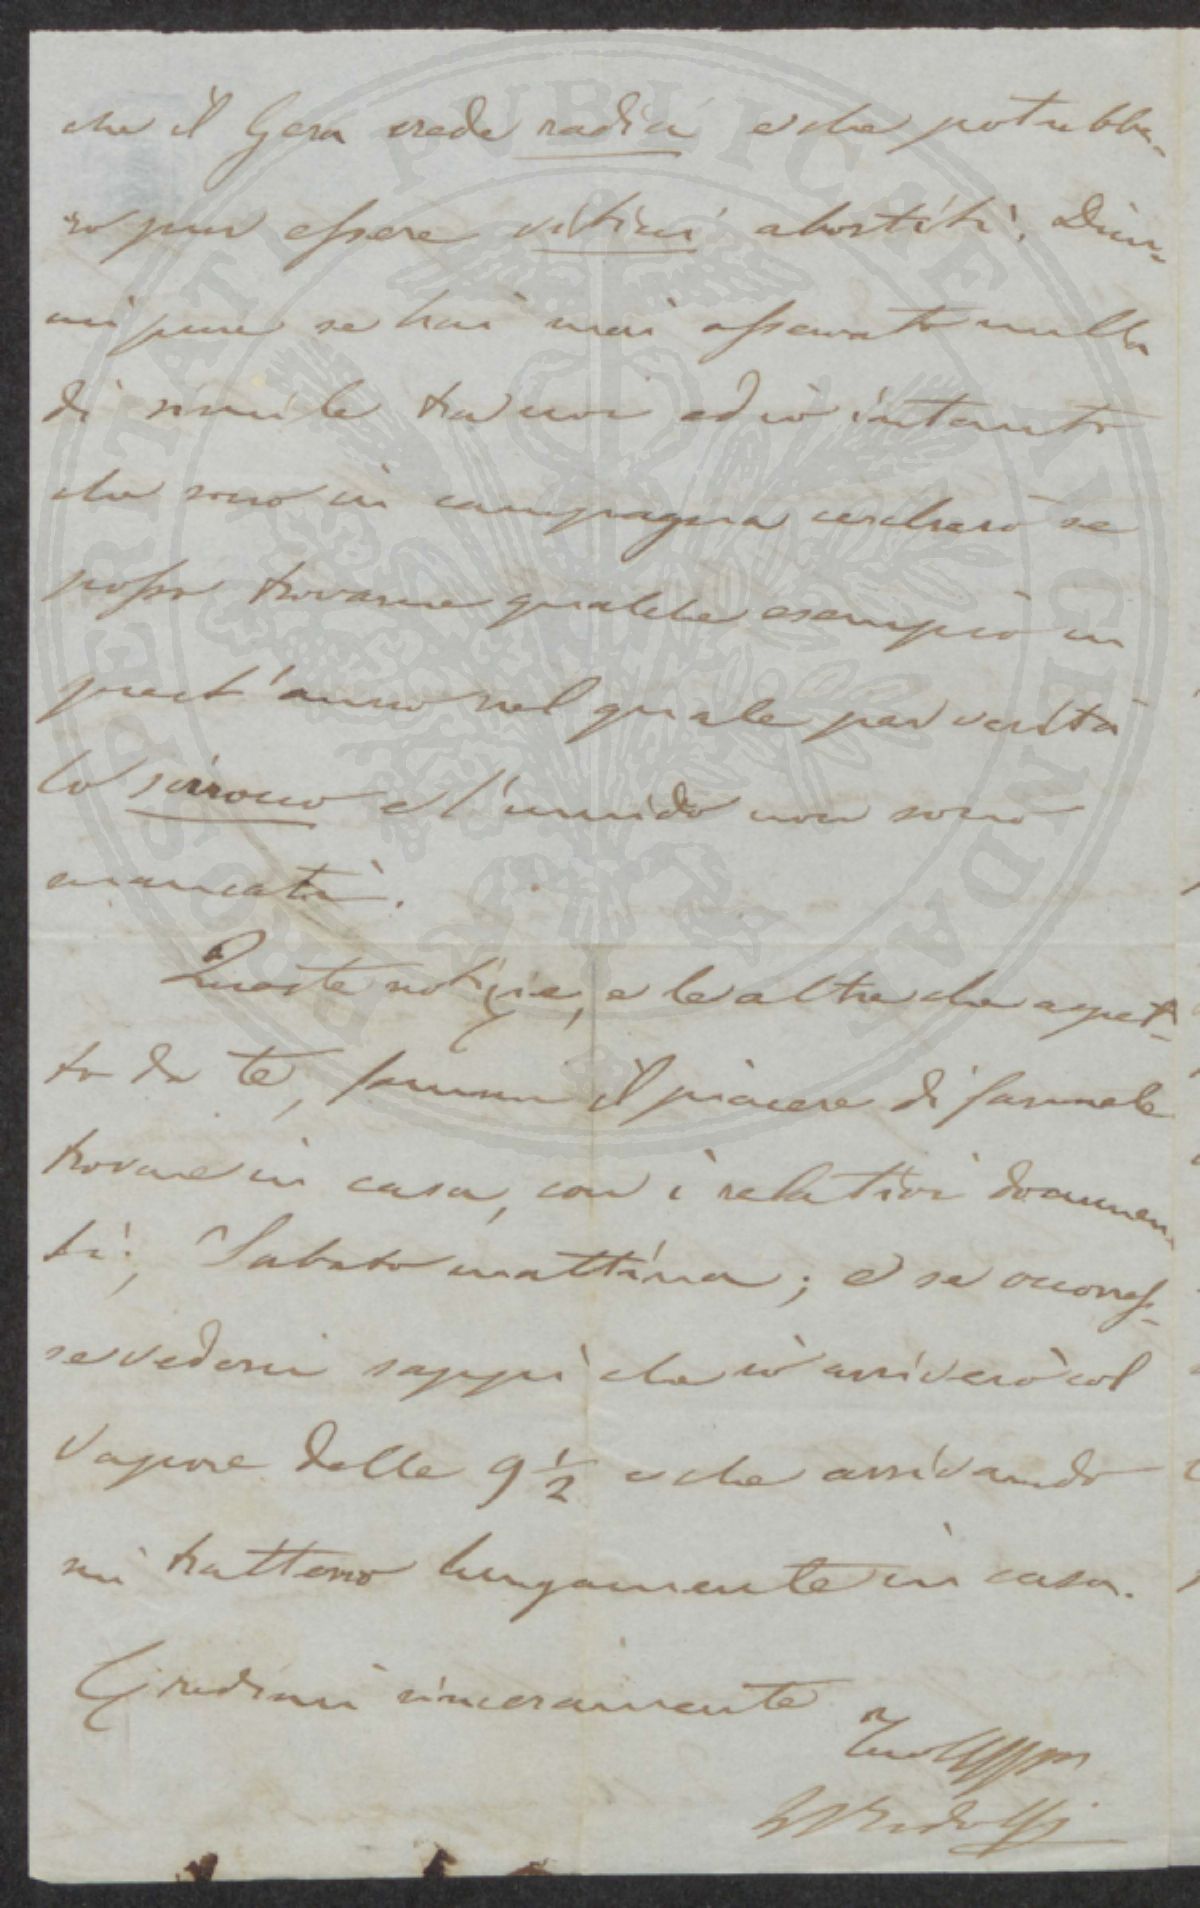 che il Gera crede radici e che potrebbe-
ro pur essere viticci abortiti. Dim-
mi pure se hai mai osservato nulla
di simile tra noi ed io intanto
che sono in campagna cercherò se
posso trovarne qualche esempio in
quest'anno nel quale per verità
lo scirocco e l'umido non sono
mancati.
Queste notizie, e le altre che aspet-
to da te, fammi il piacere di farmele
trovare in casa, con i relativi documen-
ti, Sabato mattina; e se occores-
se vedermi sappi che io arriverò col
Vapore delle 9 1/2 e che arrivando
mi trattengo lungamente in casa.
Credimi sinceramente
Tuo
Ridolfi
PROSPERITATI PUBLICAE AUGENDAE